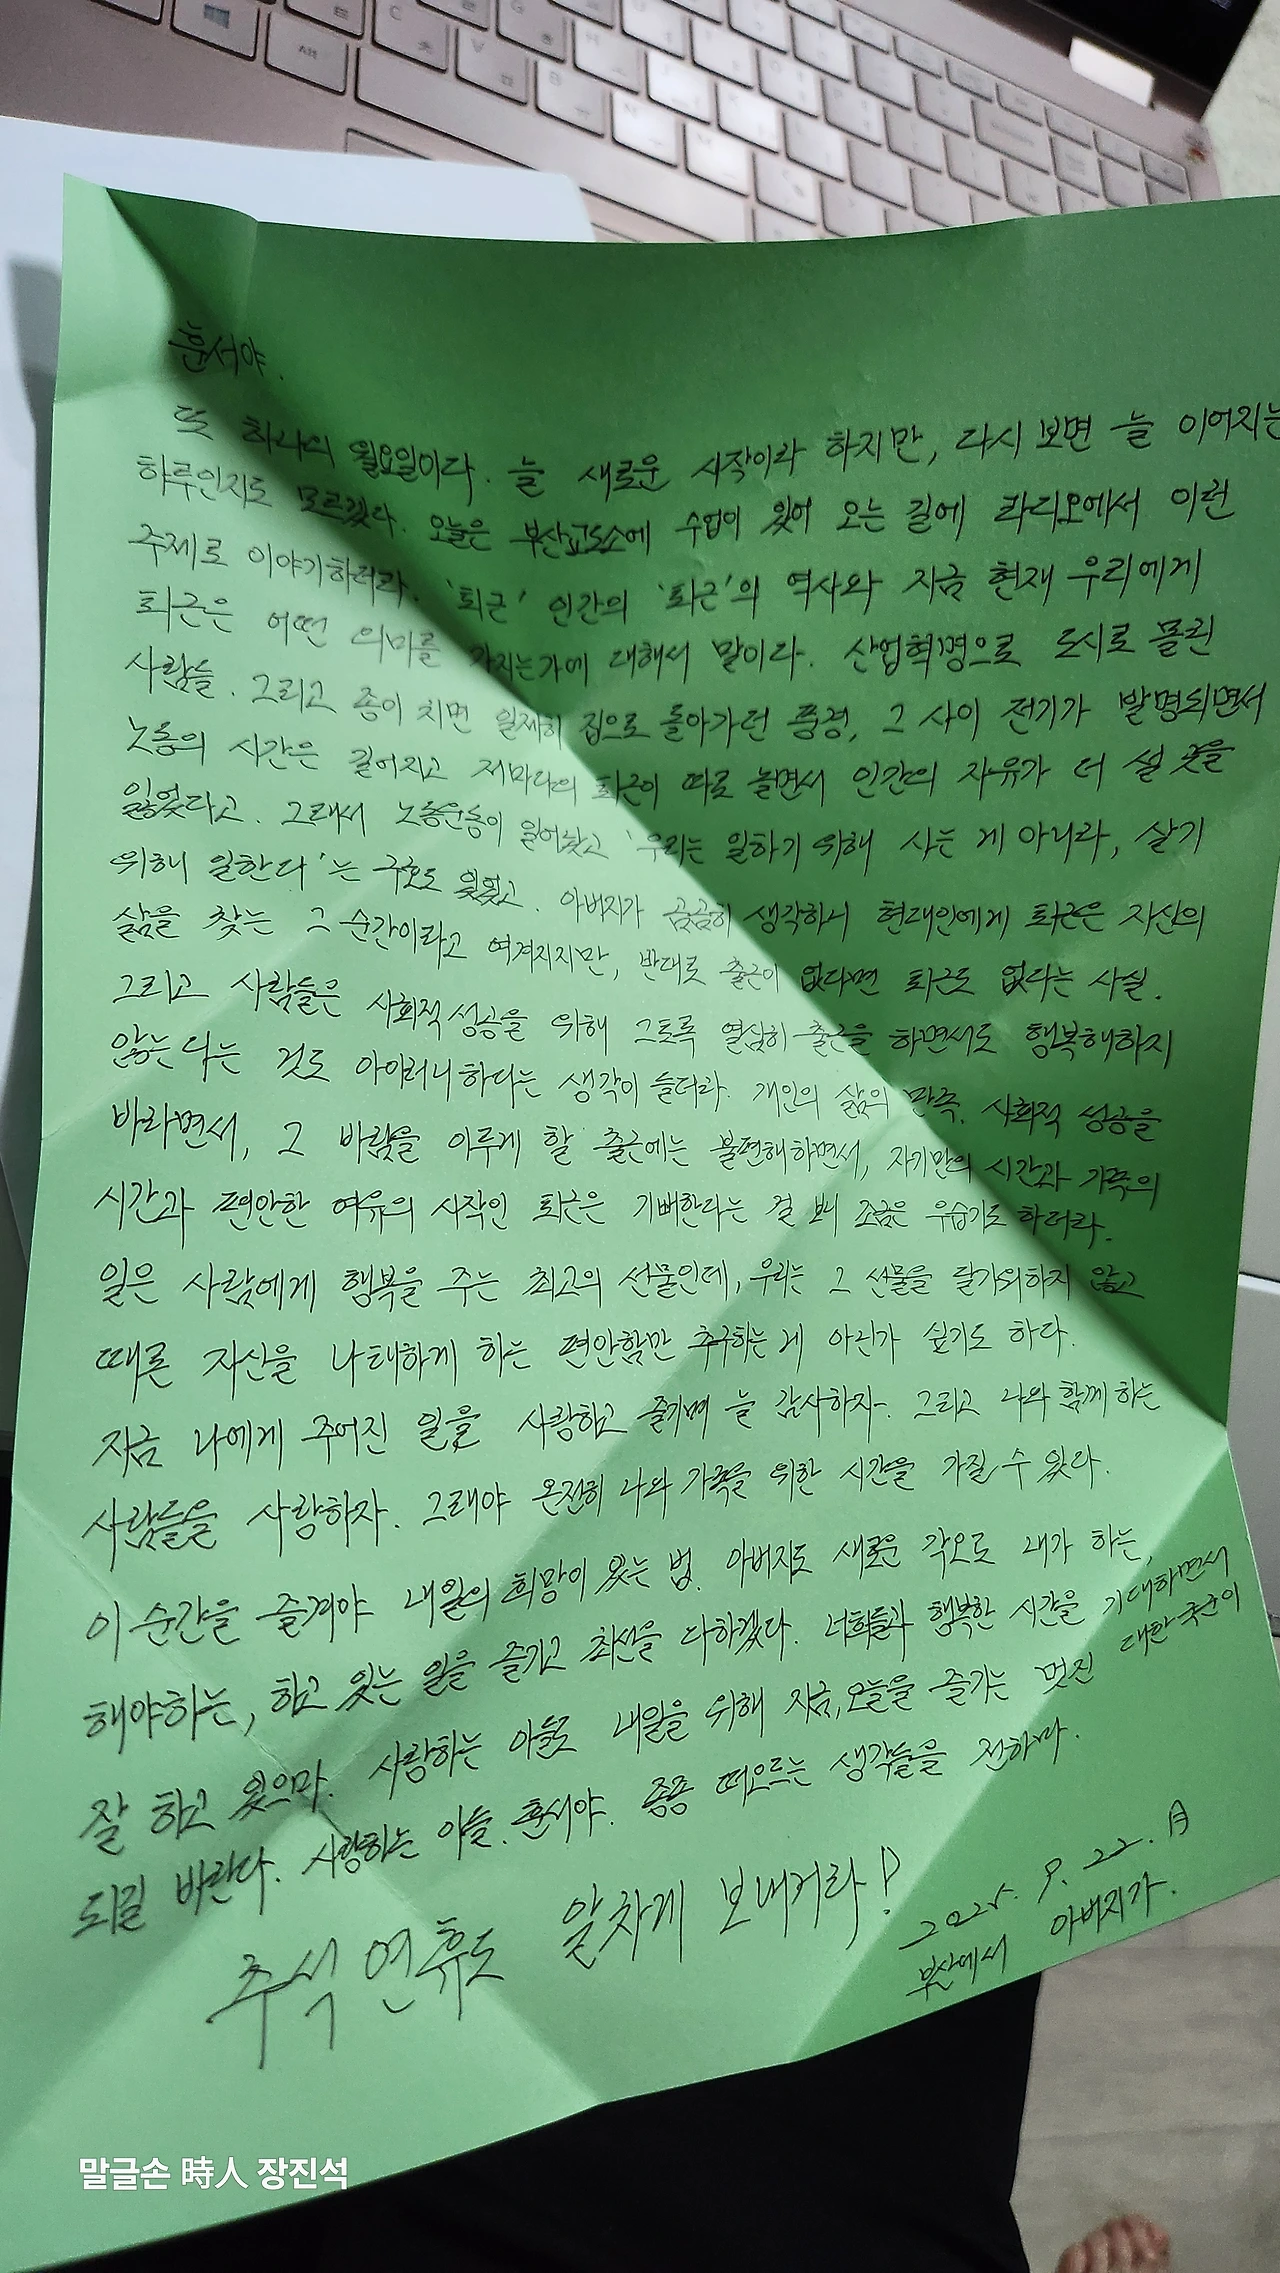 훈서야.
또 하나의 월요일이다. 늘 새로운 시작이라 하지만, 다시 보면 늘 이어지는
하루인지도 모르겠다. 오늘은 부산교도소에 수업이 있어 오는 길에 라디오에서 이런
주제로 이야기하더라. '퇴근' 인간의 '퇴근'의 역사와 지금 현재 우리에게
퇴근은 어떤 의미를 가지는가에 대해서 말이다. 산업혁명으로 도시로 몰린
사람들. 그리고 종이 치면 일제히 집으로 돌아가던 풍경, 그 사이 전기가 발명되면서
노동의 시간은 길어지고 저마다의 퇴근이 따로 놀면서 인간의 자유가 더 설 곳을
잃었다고. 그래서 노동운동이 일어났고 '우리는 일하기 위해 사는 게 아니라, 살기
위해 일한다'는 구호도 있었고. 아버지가 곰곰히 생각하니 현대인에게 퇴근은 자신의
삶을 찾는 그 순간이라고 여겨지지만, 반대로 출근이 없다면 퇴근도 없다는 사실.
그리고 사람들은 사회적 성공을 위해 그토록 열심히 출근을 하면서도 행복해하지
않는다는 것도 아이러니하다는 생각이 들더라. 개인의 삶의 만족. 사회적 성공을
바라면서, 그 바람을 이루게 할 출근에는 불편해하면서, 자기만의 시간과 가족의
시간과 편안한 여유의 시작인 퇴근은 기뻐한다는 걸 보니 조금은 우습기도 하더라.
일은 사람에게 행복을 주는 최고의 선물인데, 우리는 그 선물을 달가워하지 않고
때론 자신을 나태하게 하는 편안함만 추구하는 게 아닌가 싶기도 하다.
지금 나에게 주어진 일을 사랑하고 즐기며 늘 감사하자. 그리고 나와 함께 하는
사람들을 사랑하자. 그래야 온전히 나와 가족을 위한 시간을 가질 수 있다.
이 순간을 즐겨야 내일의 희망이 있는 법. 아버지도 새로운 각오로 내가 하는,
해야하는, 하고 있는 일을 즐기고 최선을 다하겠다. 너희들과 행복한 시간을 기대하면서
잘 하고 있으마. 사랑하는 아들도 내일을 위해 지금, 오늘을 즐기는 멋진 대한 국군이
되길 바란다. 사랑하는 아들. 훈서야. 종종 떠오르는 생각들을 전하마.
추석 연휴도 알차게 보내거라!
2025. 9. 22. 月
부산에서 아버지가.
말글손 時人 장진석